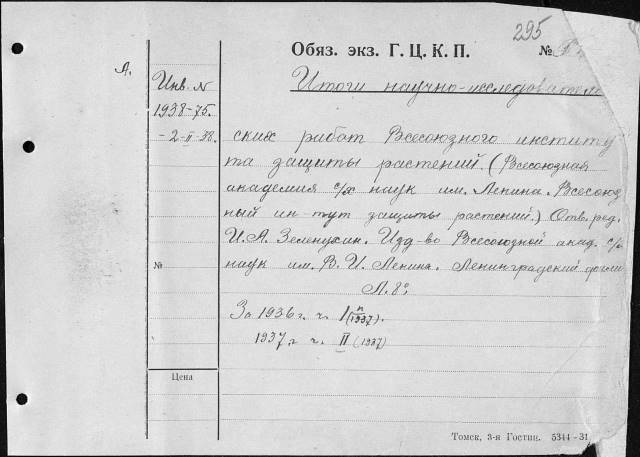 295
Обяз. экз. Г. Ц. К. П. №
А.
Инв. №
1938-75.
-2-II-38.
Итоги научно-исследователь
ских работ Всесоюзного институ
та защиты растений. (Всесоюзная
академия с/х наук им. Ленина. Всесоюз
ный ин-тут защиты растений.) Отв. ред.
И. А. Зеленухин. Изд-во Всесоюзный акад. с/х
наук им. В. И. Ленина. Ленинградский
Л. 8°.
№
За 1936 г. ч. I (1937).
1937 г. ч. II (1937)
Цена
Томск, 3-я Гостип. 5344-31